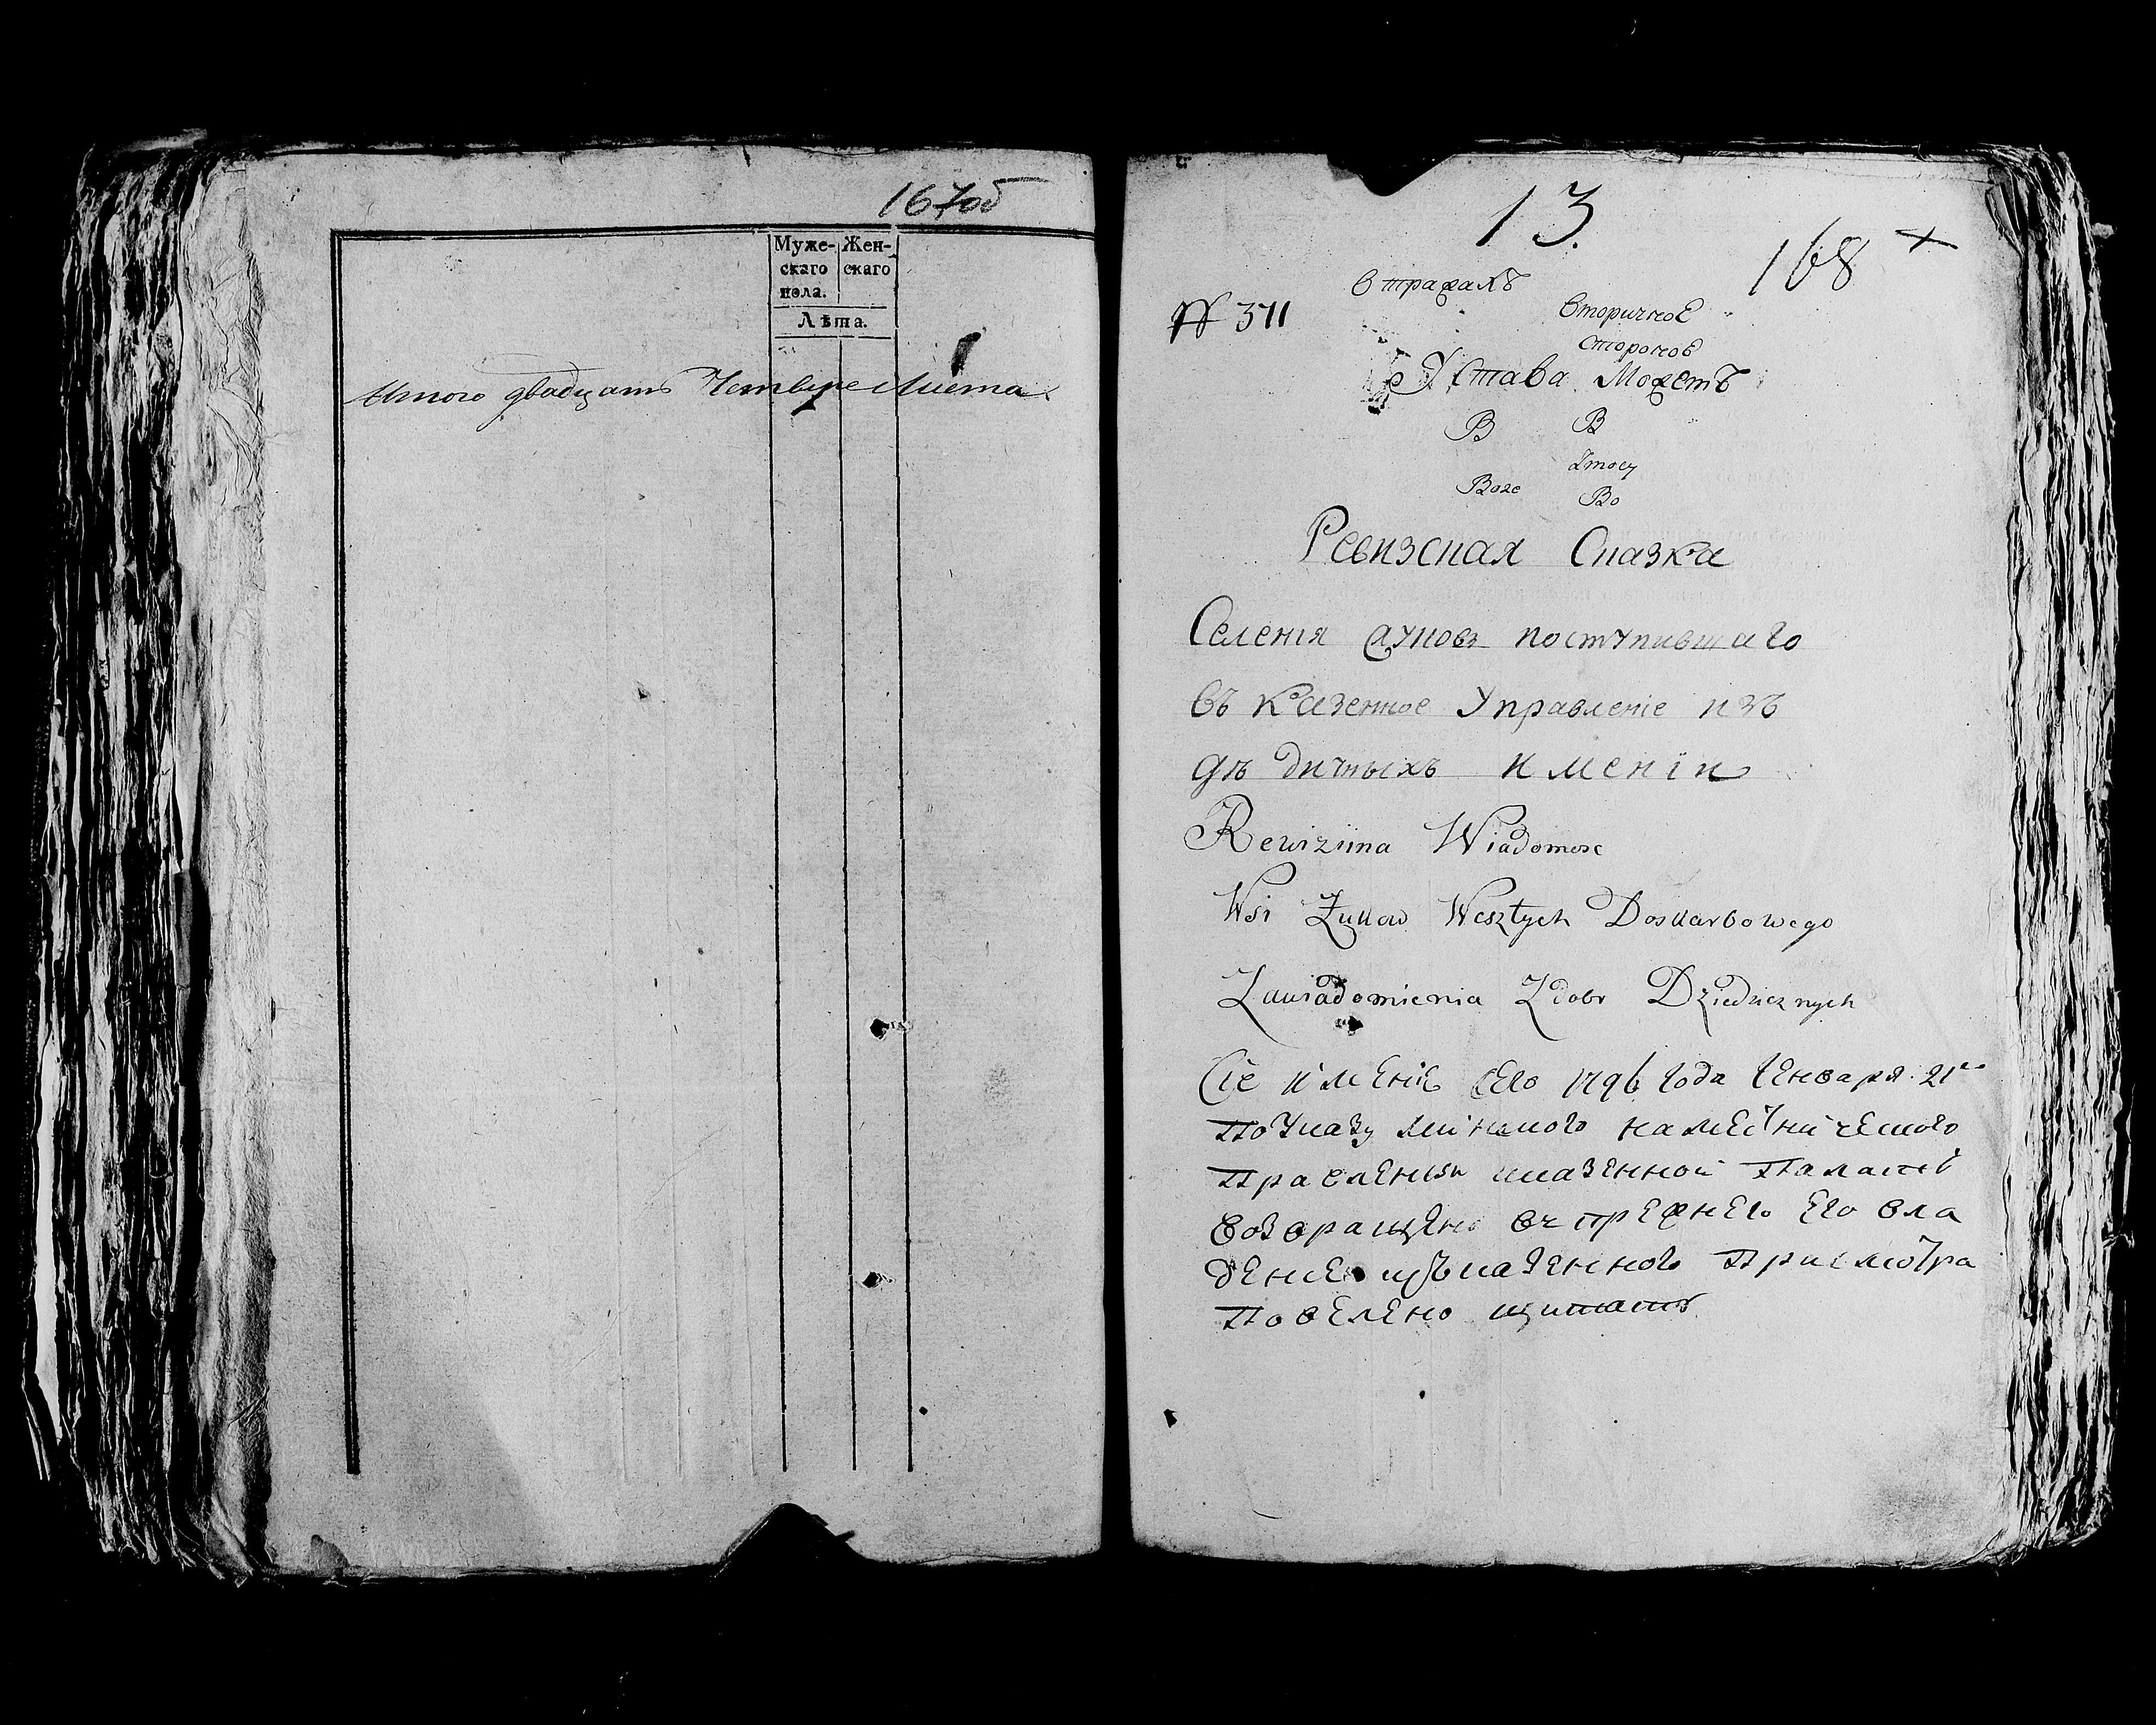 167об
Муже-
скаго
пола.
Жен-
скаго
Лѣта.
Итого двадцать Четыре Листа
13.
168 +
втраѳахъ
№ 371
вторичное
сторонов
Устава Можетъ
В В
Воге Во
Ревизская Сказка
Селенія Жуковъ поступившаго
въ казенное Управленіе изъ
дѣдичныхъ имѣніи
Rewiziina Wiadomosc
Wsi Żukow Weszłych Doskarbowego
Zawiadomienia Zdobr Dziedzicznych
Сіе имение сего 1796 года Генваря 21го
По указу минского наместнического
Правления Казенной Палате
возвращено въ прежнего его вла
дение изъ казенного Присмотра
Повелено щитать